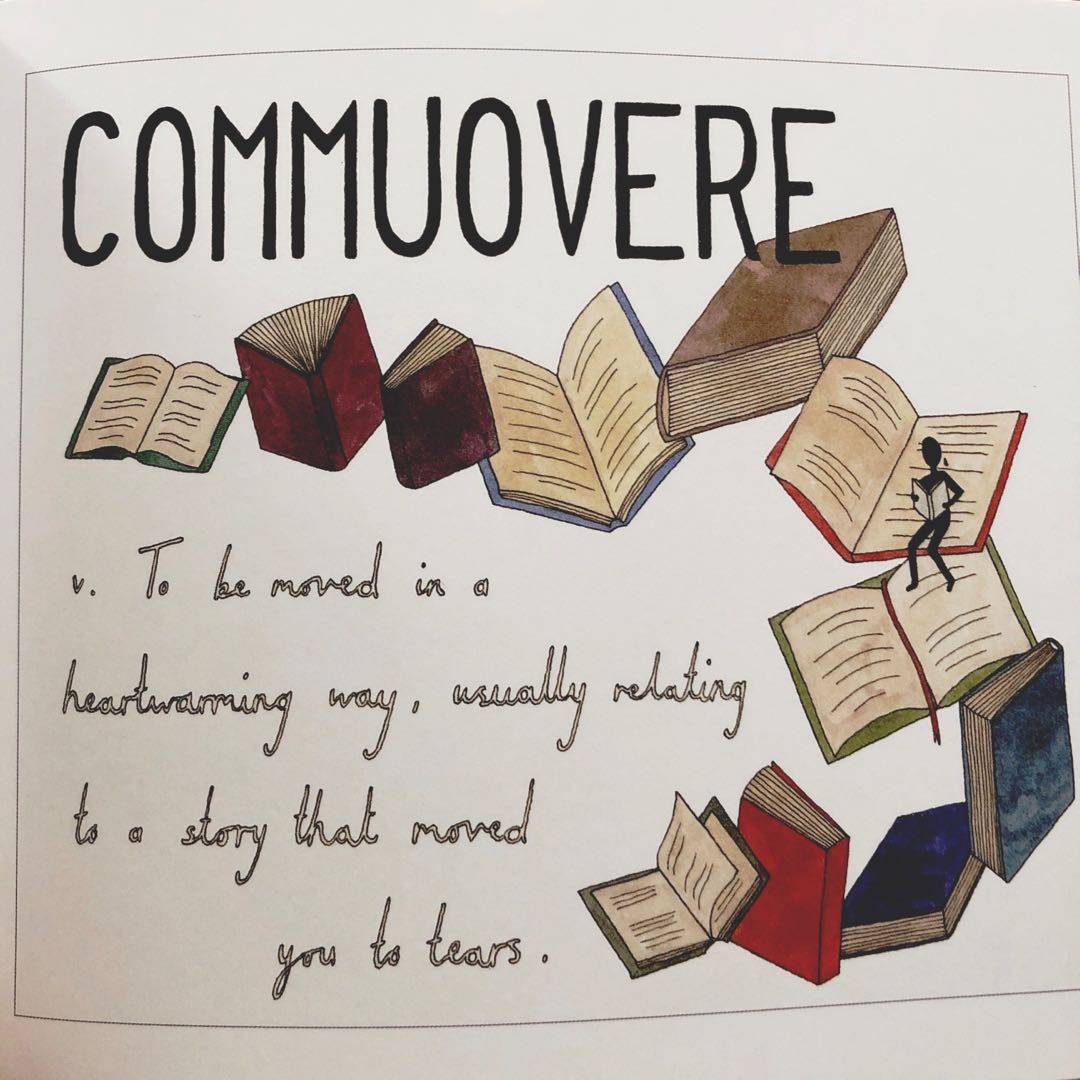 COMMUOVERE
v. To be moved in a
heartwarming way, usually relating
to a story that moved
you to tears.